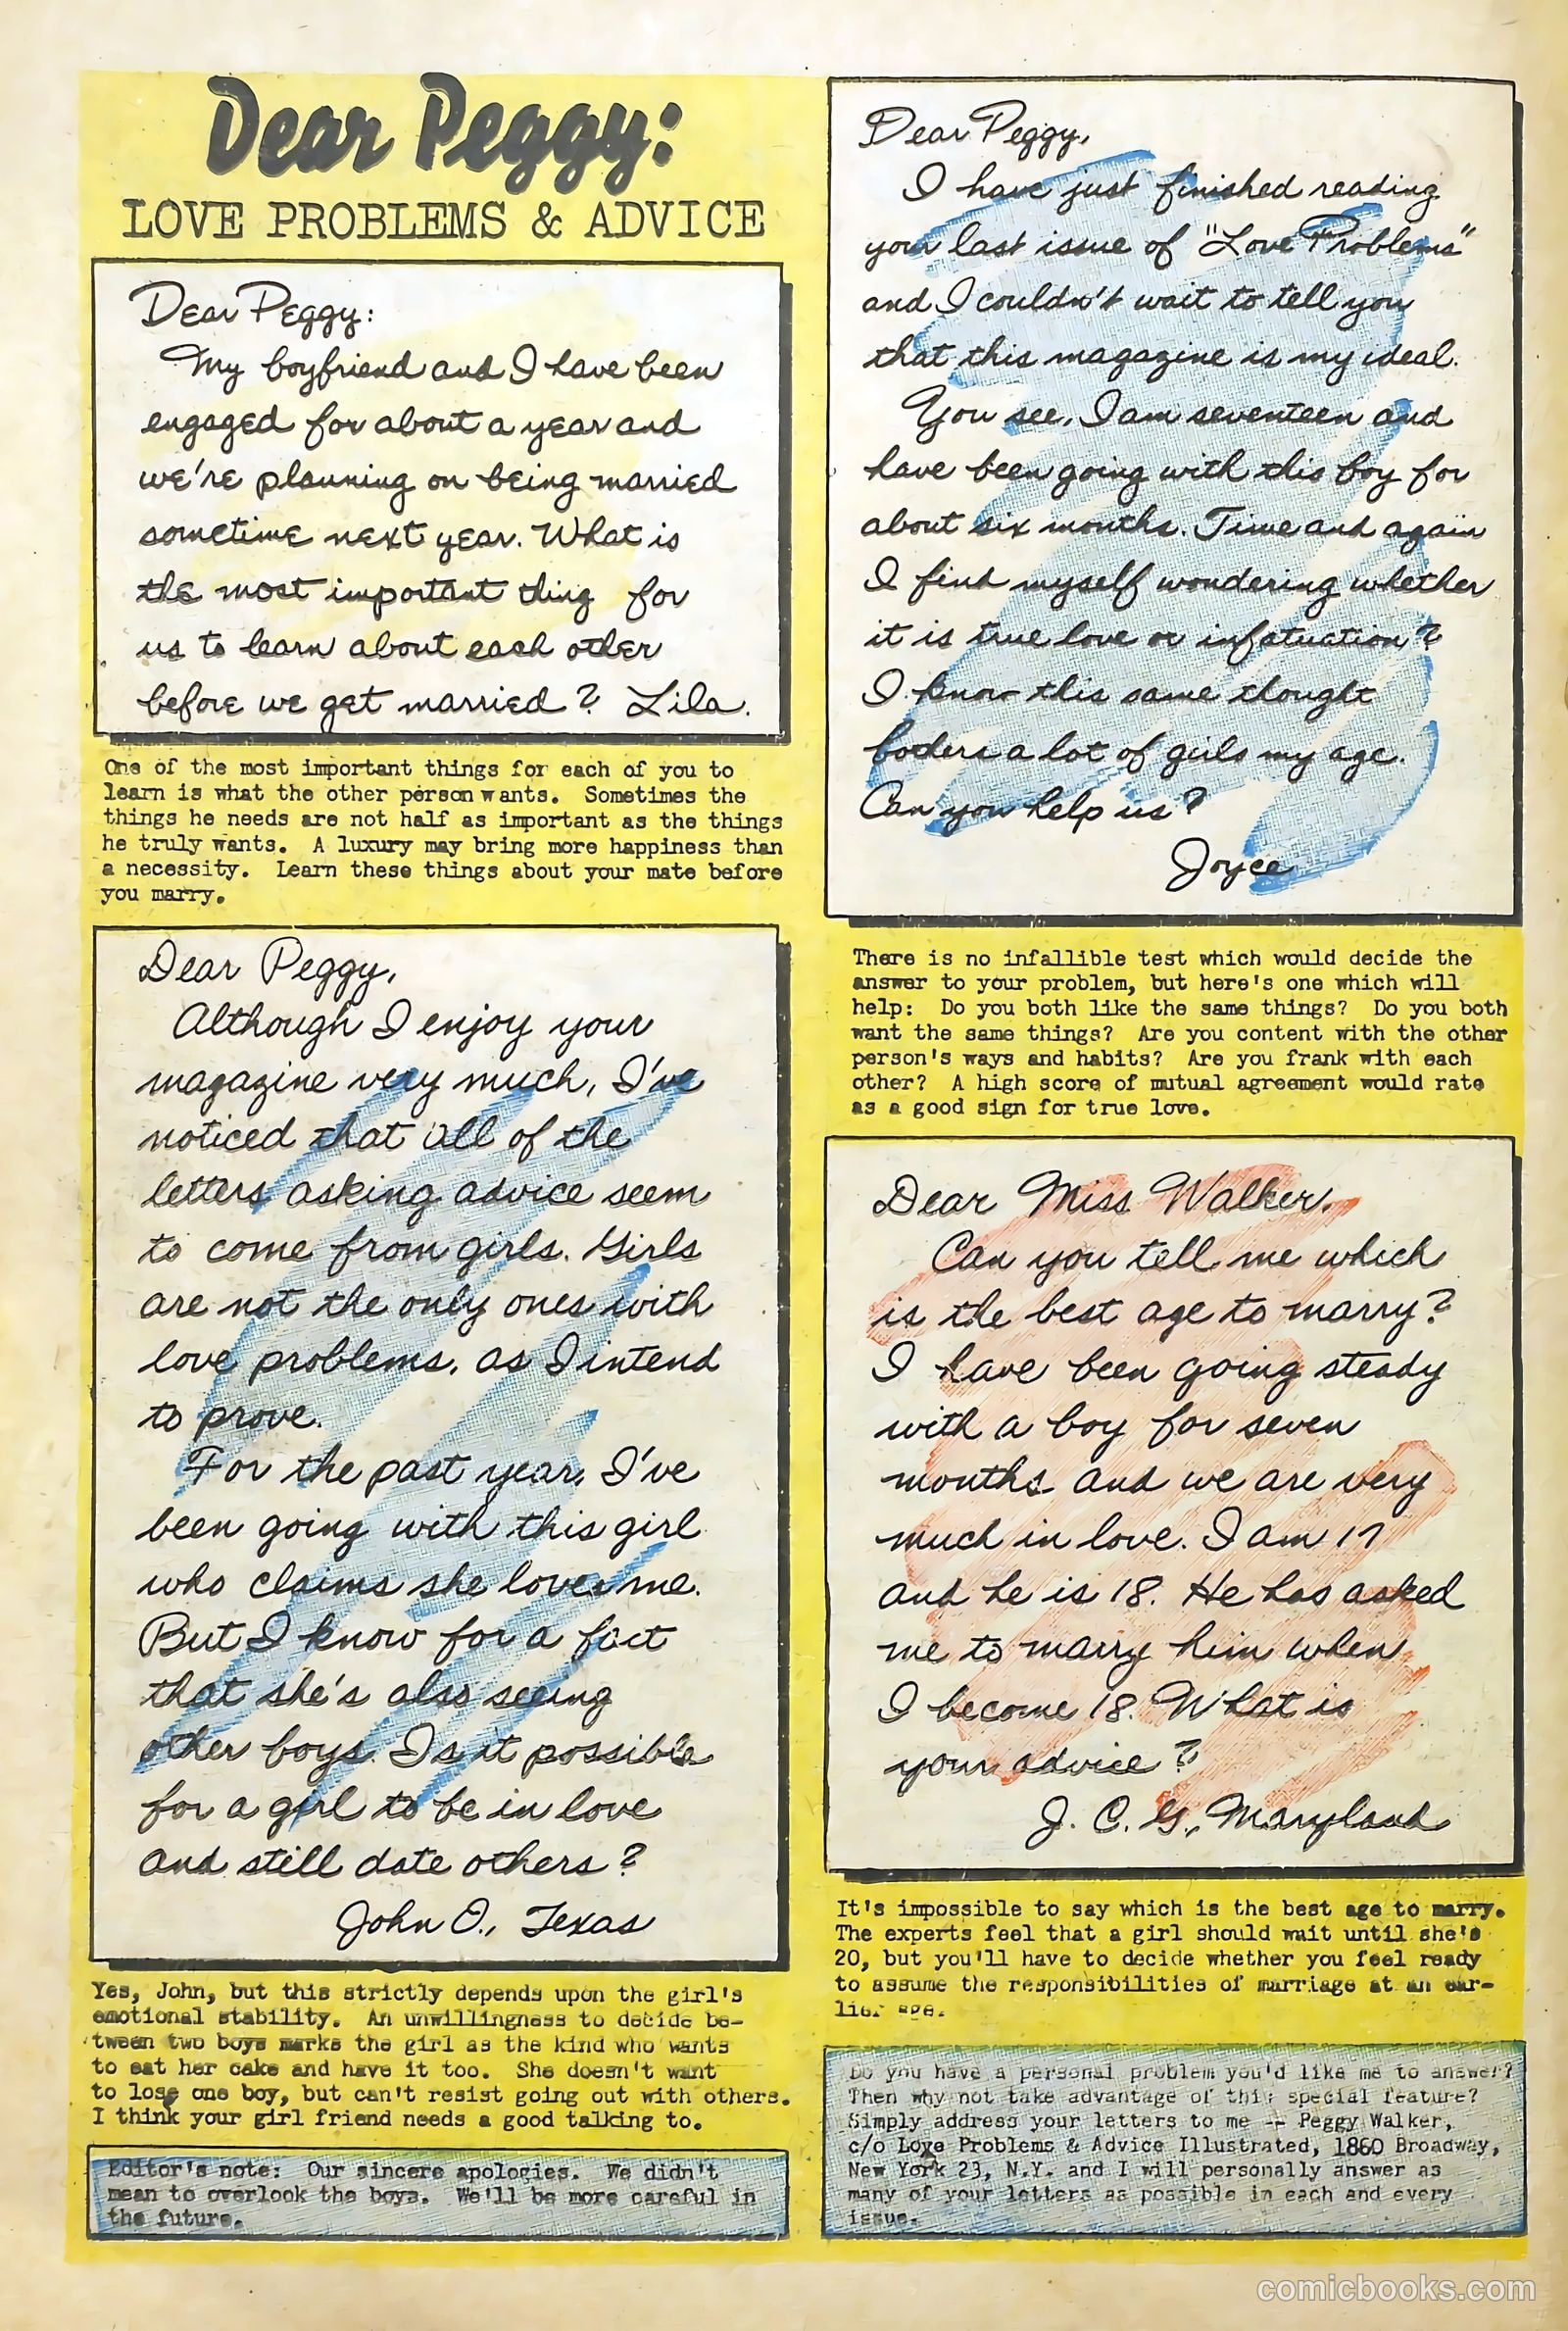 Dear Peggy:
LOVE PROBLEMS & ADVICE
Dear Peggy:
My boyfriend and I have been
engaged for about a year and
we're planning on being married
sometime next year. What is
the most important thing for
us to learn about each other
before we get married? Lila.
One of the most important things for each of you to
learn is what the other person wants. Sometimes the
things he needs are not half as important as the things
he truly wants. A luxury may bring more happiness than
a necessity. Learn these things about your mate before
you marry.
Dear Peggy,
Although I enjoy your
magazine very much, I've
noticed that all of the
letters asking advice seem
to come from girls. Girls
are not the only ones with
love problems, as I intend
to prove.
For the past year, I've
been going with this girl
who claims she loves me.
But I know for a fact
that she's also seeing
other boys. Is it possible
for a girl to be in love
and still date others?
John O., Texas
Yes, John, but this strictly depends upon the girl's
emotional stability. An unwillingness to decide be-
tween two boys marks the girl as the kind who wants
to eat her cake and have it too. She doesn't want
to lose one boy, but can't resist going out with others.
I think your girl friend needs a good talking to.
Editor's note: Our sincere apologies. We didn't
mean to overlook the boys. We'll be more careful in
the future.
Dear Peggy,
I have just finished reading
your last issue of "Love Problems"
and I couldn't wait to tell you
that this magazine is my ideal.
You see, I am seventeen and
have been going with this boy for
about six months. Time and again
I find myself wondering whether
it is true love or infatuation?
I know this same thought
bothers a lot of girls my age.
Can you help us?
Joyce
There is no infallible test which would decide the
answer to your problem, but here's one which will
help: Do you both like the same things? Do you both
want the same things? Are you content with the other
person's ways and habits? Are you frank with each
other? A high score of mutual agreement would rate
as a good sign for true love.
Dear Miss Walker,
Can you tell me which
is the best age to marry?
I have been going steady
with a boy for seven
months and we are very
much in love. I am 17
and he is 18. He has asked
me to marry him when
I become 18. What is
your advice?
J. C. G., Maryland
It's impossible to say which is the best age to marry.
The experts feel that a girl should wait until she's
20, but you'll have to decide whether you feel ready
to assume the responsibilities of marriage at an ear-
lier age.
Do you have a personal problem you'd like me to answer?
Then why not take advantage of this special feature?
Simply address your letters to me -- Peggy Walker,
c/o Love Problems & Advice Illustrated, 1860 Broadway,
New York 23, N.Y. and I will personally answer as
many of your letters as possible in each and every
issue.
comicbooks.com